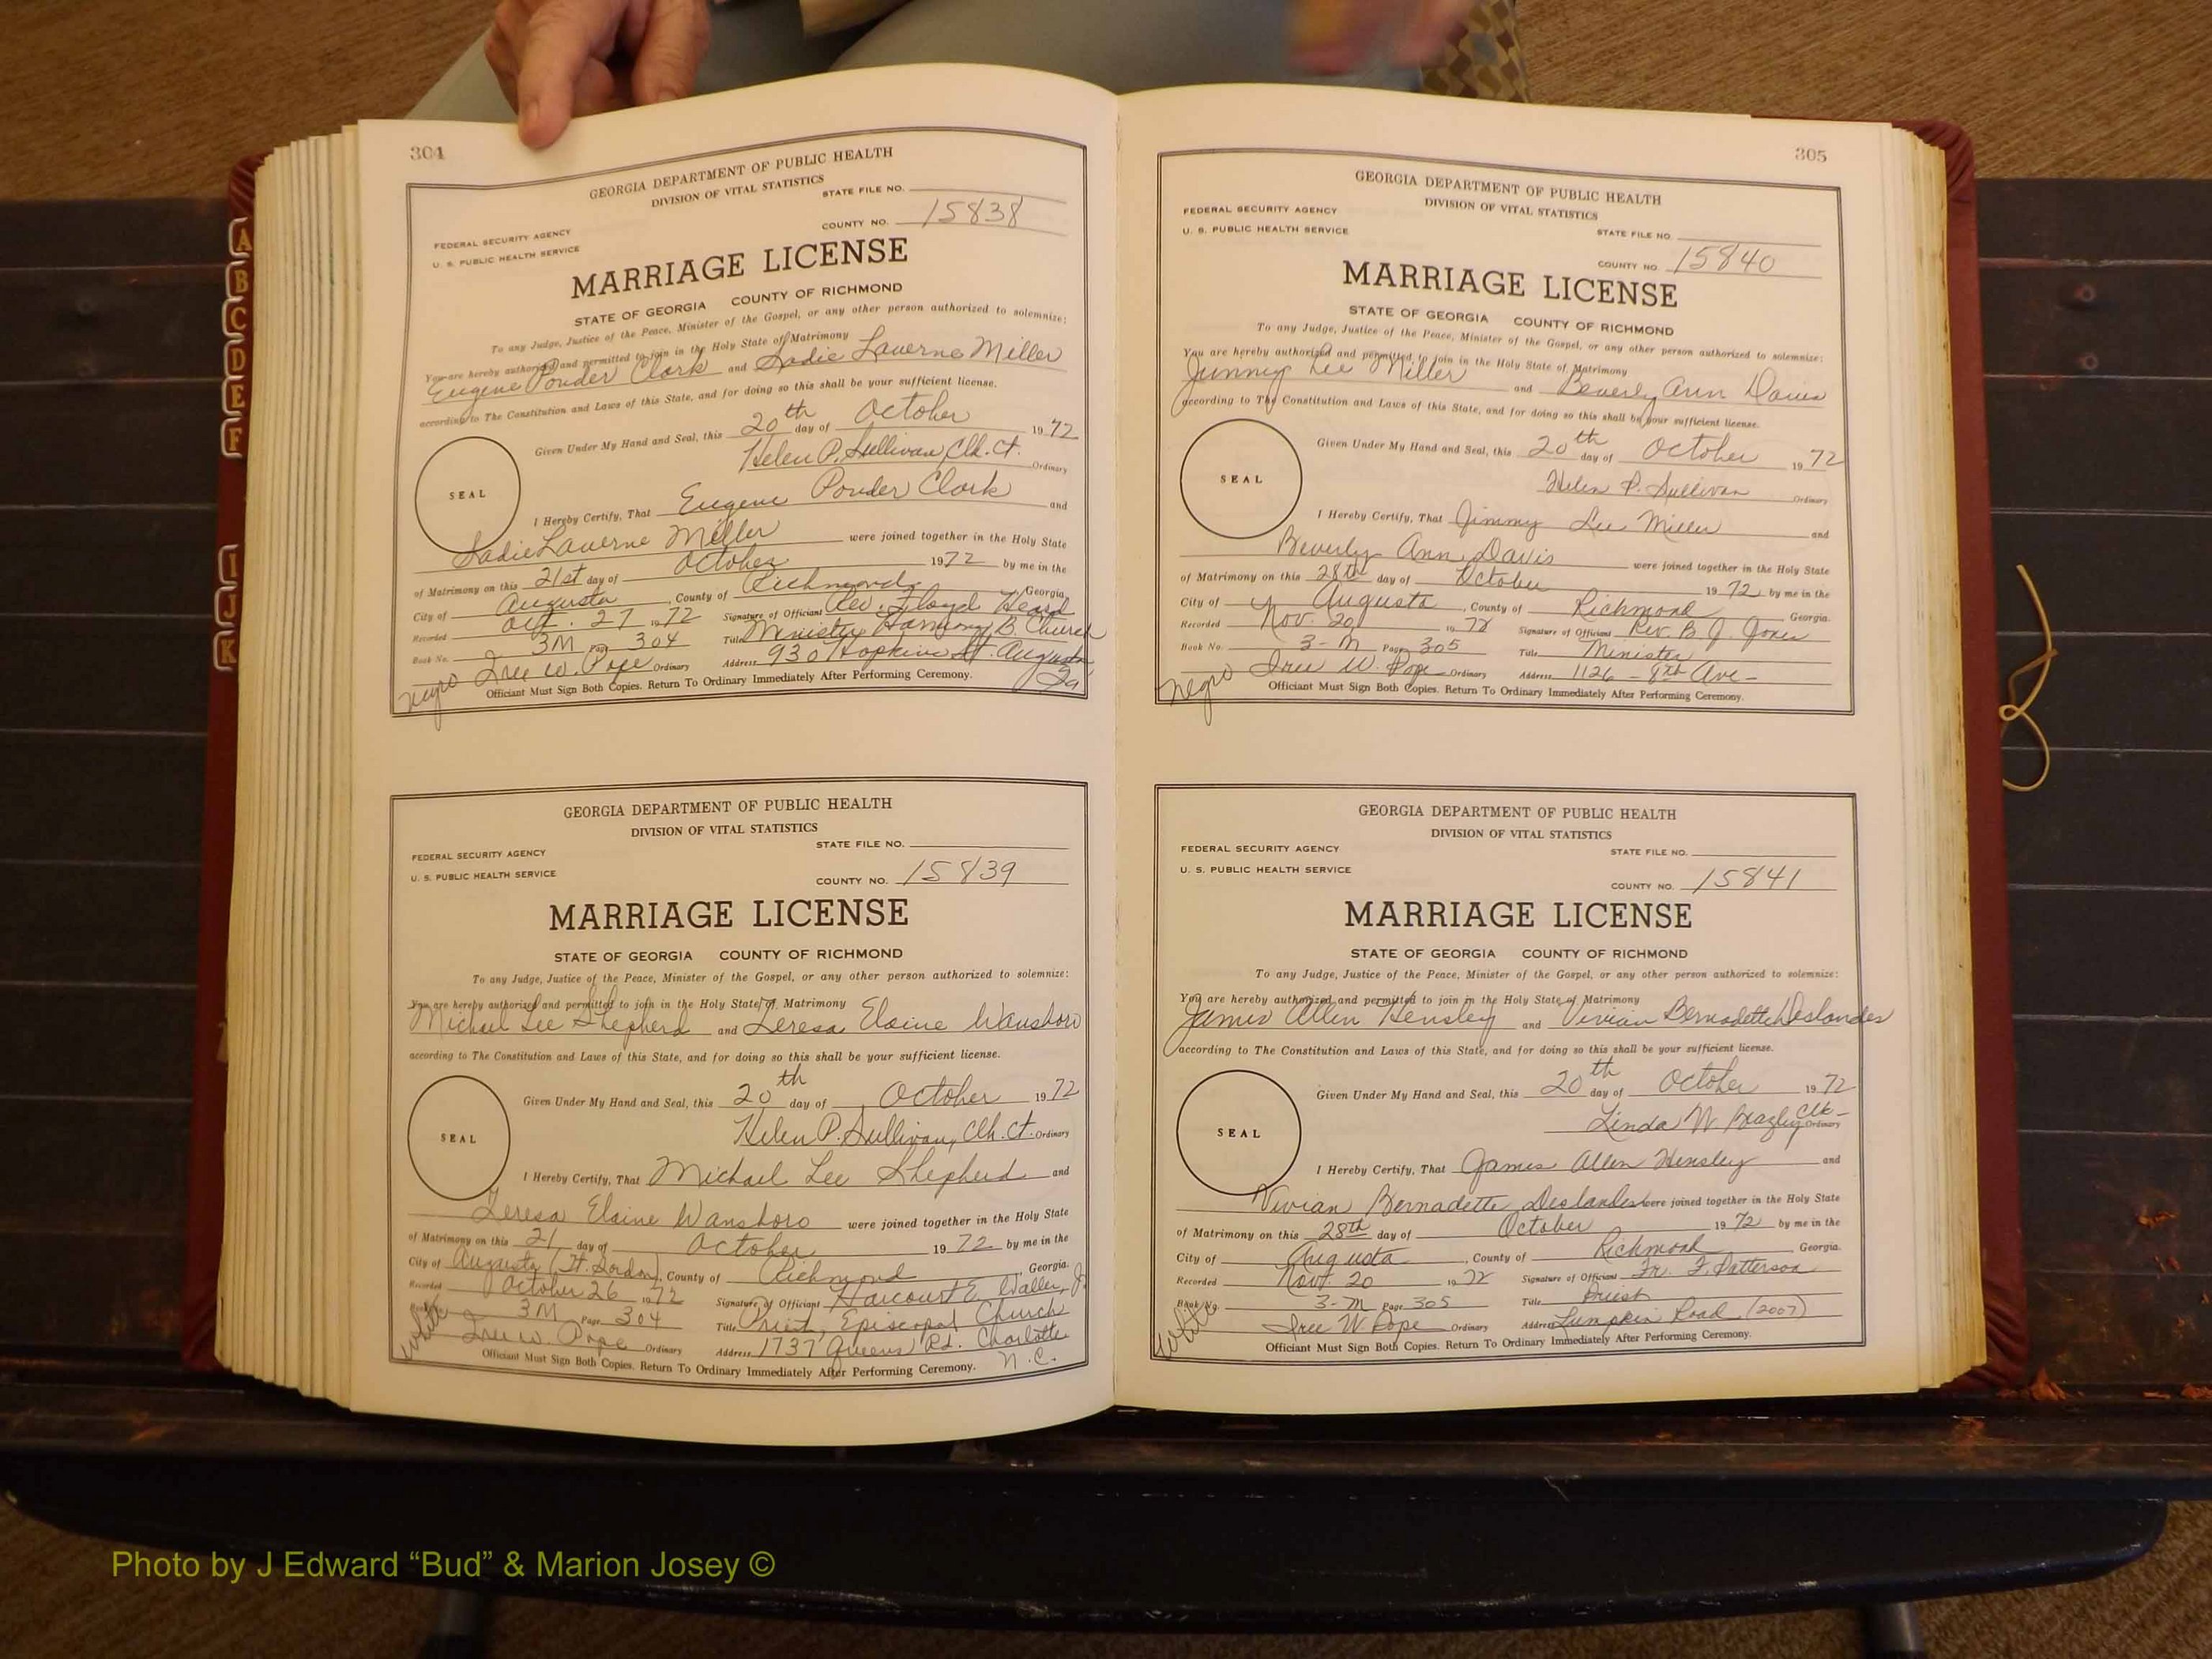 304
GEORGIA DEPARTMENT OF PUBLIC HEALTH
DIVISION OF VITAL STATISTICS
STATE FILE NO.
COUNTY NO. 15838
FEDERAL SECURITY AGENCY
U. S. PUBLIC HEALTH SERVICE
MARRIAGE LICENSE
STATE OF GEORGIA COUNTY OF RICHMOND
To any Judge, Justice of the Peace, Minister of the Gospel, or any other person authorized to solemnize:
You are hereby authorized and permitted to join in the Holy State of Matrimony
Eugene Ponder Clark and Sadie Laverne Miller
according to The Constitution and Laws of this State, and for doing so this shall be your sufficient license.
Given Under My Hand and Seal, this 20th day of October 1972
Helen P. Sullivan, Clk. Ct. Ordinary
SEAL
I Hereby Certify, That Eugene Ponder Clark and
Sadie Laverne Miller were joined together in the Holy State
of Matrimony on this 21st day of October 1972 by me in the
City of Augusta, County of Richmond, Georgia.
Recorded Oct. 27 1972 Signature of Officiant Rev. Floyd Heard
Book No. 3M Page 304 Title Minister Harmony B. Church
Iree W. Pope Ordinary Address 930 Hopkins St. Augusta Ga
negro
Officiant Must Sign Both Copies. Return To Ordinary Immediately After Performing Ceremony.
GEORGIA DEPARTMENT OF PUBLIC HEALTH
DIVISION OF VITAL STATISTICS
STATE FILE NO.
FEDERAL SECURITY AGENCY
U. S. PUBLIC HEALTH SERVICE
COUNTY NO. 15839
MARRIAGE LICENSE
STATE OF GEORGIA COUNTY OF RICHMOND
To any Judge, Justice of the Peace, Minister of the Gospel, or any other person authorized to solemnize:
You are hereby authorized and permitted to join in the Holy State of Matrimony
Michael Lee Shepherd and Teresa Elaine Wansboro
according to The Constitution and Laws of this State, and for doing so this shall be your sufficient license.
Given Under My Hand and Seal, this 20th day of October 1972
Helen P. Sullivan, Clk. Ct. Ordinary
SEAL
I Hereby Certify, That Michael Lee Shepherd and
Teresa Elaine Wansboro were joined together in the Holy State
of Matrimony on this 21 day of October 1972 by me in the
City of Augusta (Ft. Gordon), County of Richmond, Georgia.
Recorded October 26 1972 Signature of Officiant Harcourt E. Waller, Jr.
Book No. 3M Page 304 Title Priest, Episcopal Church
Iree W. Pope Ordinary Address 1737 Queens Rd. Charlotte N.C.
white
Officiant Must Sign Both Copies. Return To Ordinary Immediately After Performing Ceremony.
305
GEORGIA DEPARTMENT OF PUBLIC HEALTH
DIVISION OF VITAL STATISTICS
FEDERAL SECURITY AGENCY
U. S. PUBLIC HEALTH SERVICE
STATE FILE NO.
COUNTY NO. 15840
MARRIAGE LICENSE
STATE OF GEORGIA COUNTY OF RICHMOND
To any Judge, Justice of the Peace, Minister of the Gospel, or any other person authorized to solemnize:
You are hereby authorized and permitted to join in the Holy State of Matrimony
Jimmy Lee Miller and Beverly Ann Davis
according to The Constitution and Laws of this State, and for doing so this shall be your sufficient license.
Given Under My Hand and Seal, this 20th day of October 1972
Helen P. Sullivan Ordinary
SEAL
I Hereby Certify, That Jimmy Lee Miller and
Beverly Ann Davis were joined together in the Holy State
of Matrimony on this 28th day of October 1972 by me in the
City of Augusta, County of Richmond Georgia.
Recorded Nov. 20 1972 Signature of Officiant Rev. B. J. Jones
Book No. 3-M Page 305 Title Minister
Iree W. Pope Ordinary Address 1126 - 8th Ave -
negro
Officiant Must Sign Both Copies. Return To Ordinary Immediately After Performing Ceremony.
GEORGIA DEPARTMENT OF PUBLIC HEALTH
DIVISION OF VITAL STATISTICS
FEDERAL SECURITY AGENCY
STATE FILE NO.
U. S. PUBLIC HEALTH SERVICE
COUNTY NO. 15841
MARRIAGE LICENSE
STATE OF GEORGIA COUNTY OF RICHMOND
To any Judge, Justice of the Peace, Minister of the Gospel, or any other person authorized to solemnize:
You are hereby authorized and permitted to join in the Holy State of Matrimony
James Allen Hensley and Vivian Bernadette Deslandes
according to The Constitution and Laws of this State, and for doing so this shall be your sufficient license.
Given Under My Hand and Seal, this 20th day of October 1972
Linda W. Clk- Ordinary
SEAL
I Hereby Certify, That James Allen Hensley and
Vivian Bernadette Deslandes were joined together in the Holy State
of Matrimony on this 28th day of October 1972 by me in the
City of Augusta, County of Richmond Georgia.
Recorded Nov. 20 1972 Signature of Officiant Fr. F. Patterson
Book No. 3-M Page 305 Title Priest
Iree W. Pope Ordinary Address Lumpkin Road (2007)
white
Officiant Must Sign Both Copies. Return To Ordinary Immediately After Performing Ceremony.
A
B
C
D
E
F
I
J
K
Photo by J Edward “Bud” & Marion Josey ©